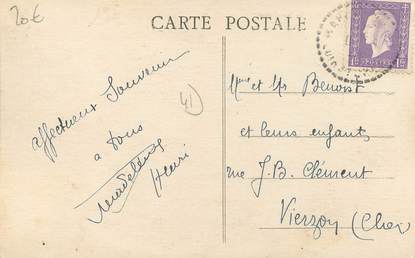 20€
CARTE POSTALE
affectueux Souvenir
a tous
Madeleine
Henri
41
Mme et Mr Benoist
et leurs enfants
rue J.B. Clément
Vierzon (Cher)